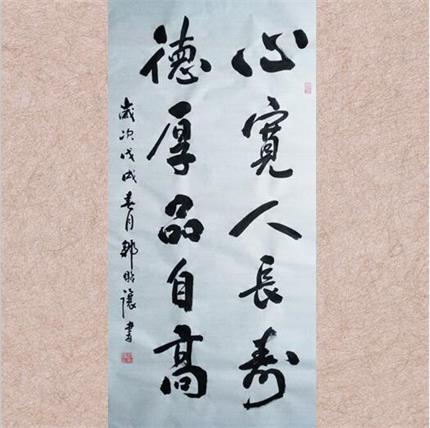 心寬人長寿
德厚品自高
歲次戊戌春月
書